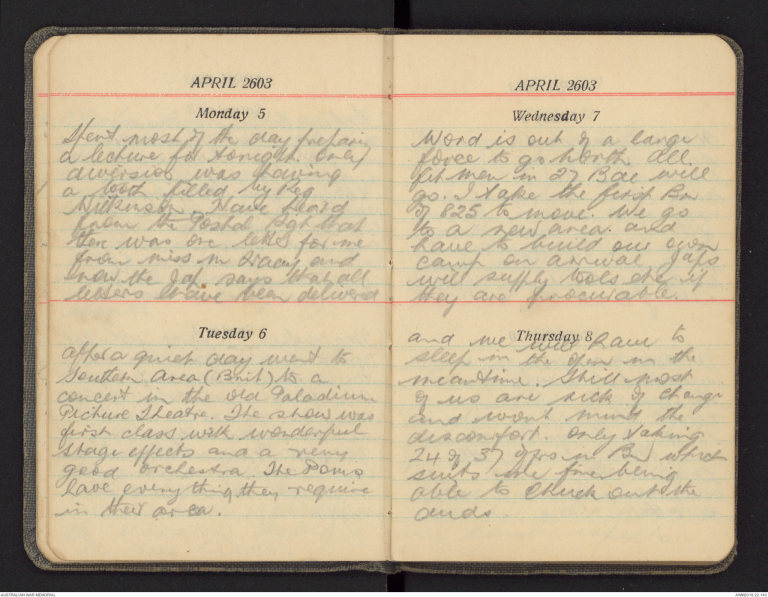 APRIL 2603
Monday 5
Spent most of the day preparing
a lecture for tonight. Only
diversion was having
a tooth filled by Reg
Wilkinson. Have heard
from the Postal Sgt that
there was one letter for me
from miss m Tracey and
now the Jap says that all
letters have been delivered
Tuesday 6
after a quiet day went to
Southern Area (Brit) to a
concert in the old Paladium
Picture Theatre. The show was
first class with wonderful
stage effects and a very
good orchestra. The Poms
have everything they require
in their area.
APRIL 2603
Wednesday 7
Word is out of a large
force to go North. All
fit men in 27 Bde will
go. I take the first Bn
of 825 to move. We go
to a new area and
have to build our own
camp on arrival Japs
will supply tools etc if
they are procurable.
Thursday 8
and we will have to
sleep in the open in the
meantime. Still most
of us are sick of Changi
and wont mind the
discomfort. Only taking
24 of 37 offrs in Bn which
suits me fine being
able to chuck out the
duds
AUSTRALIAN WAR MEMORIAL